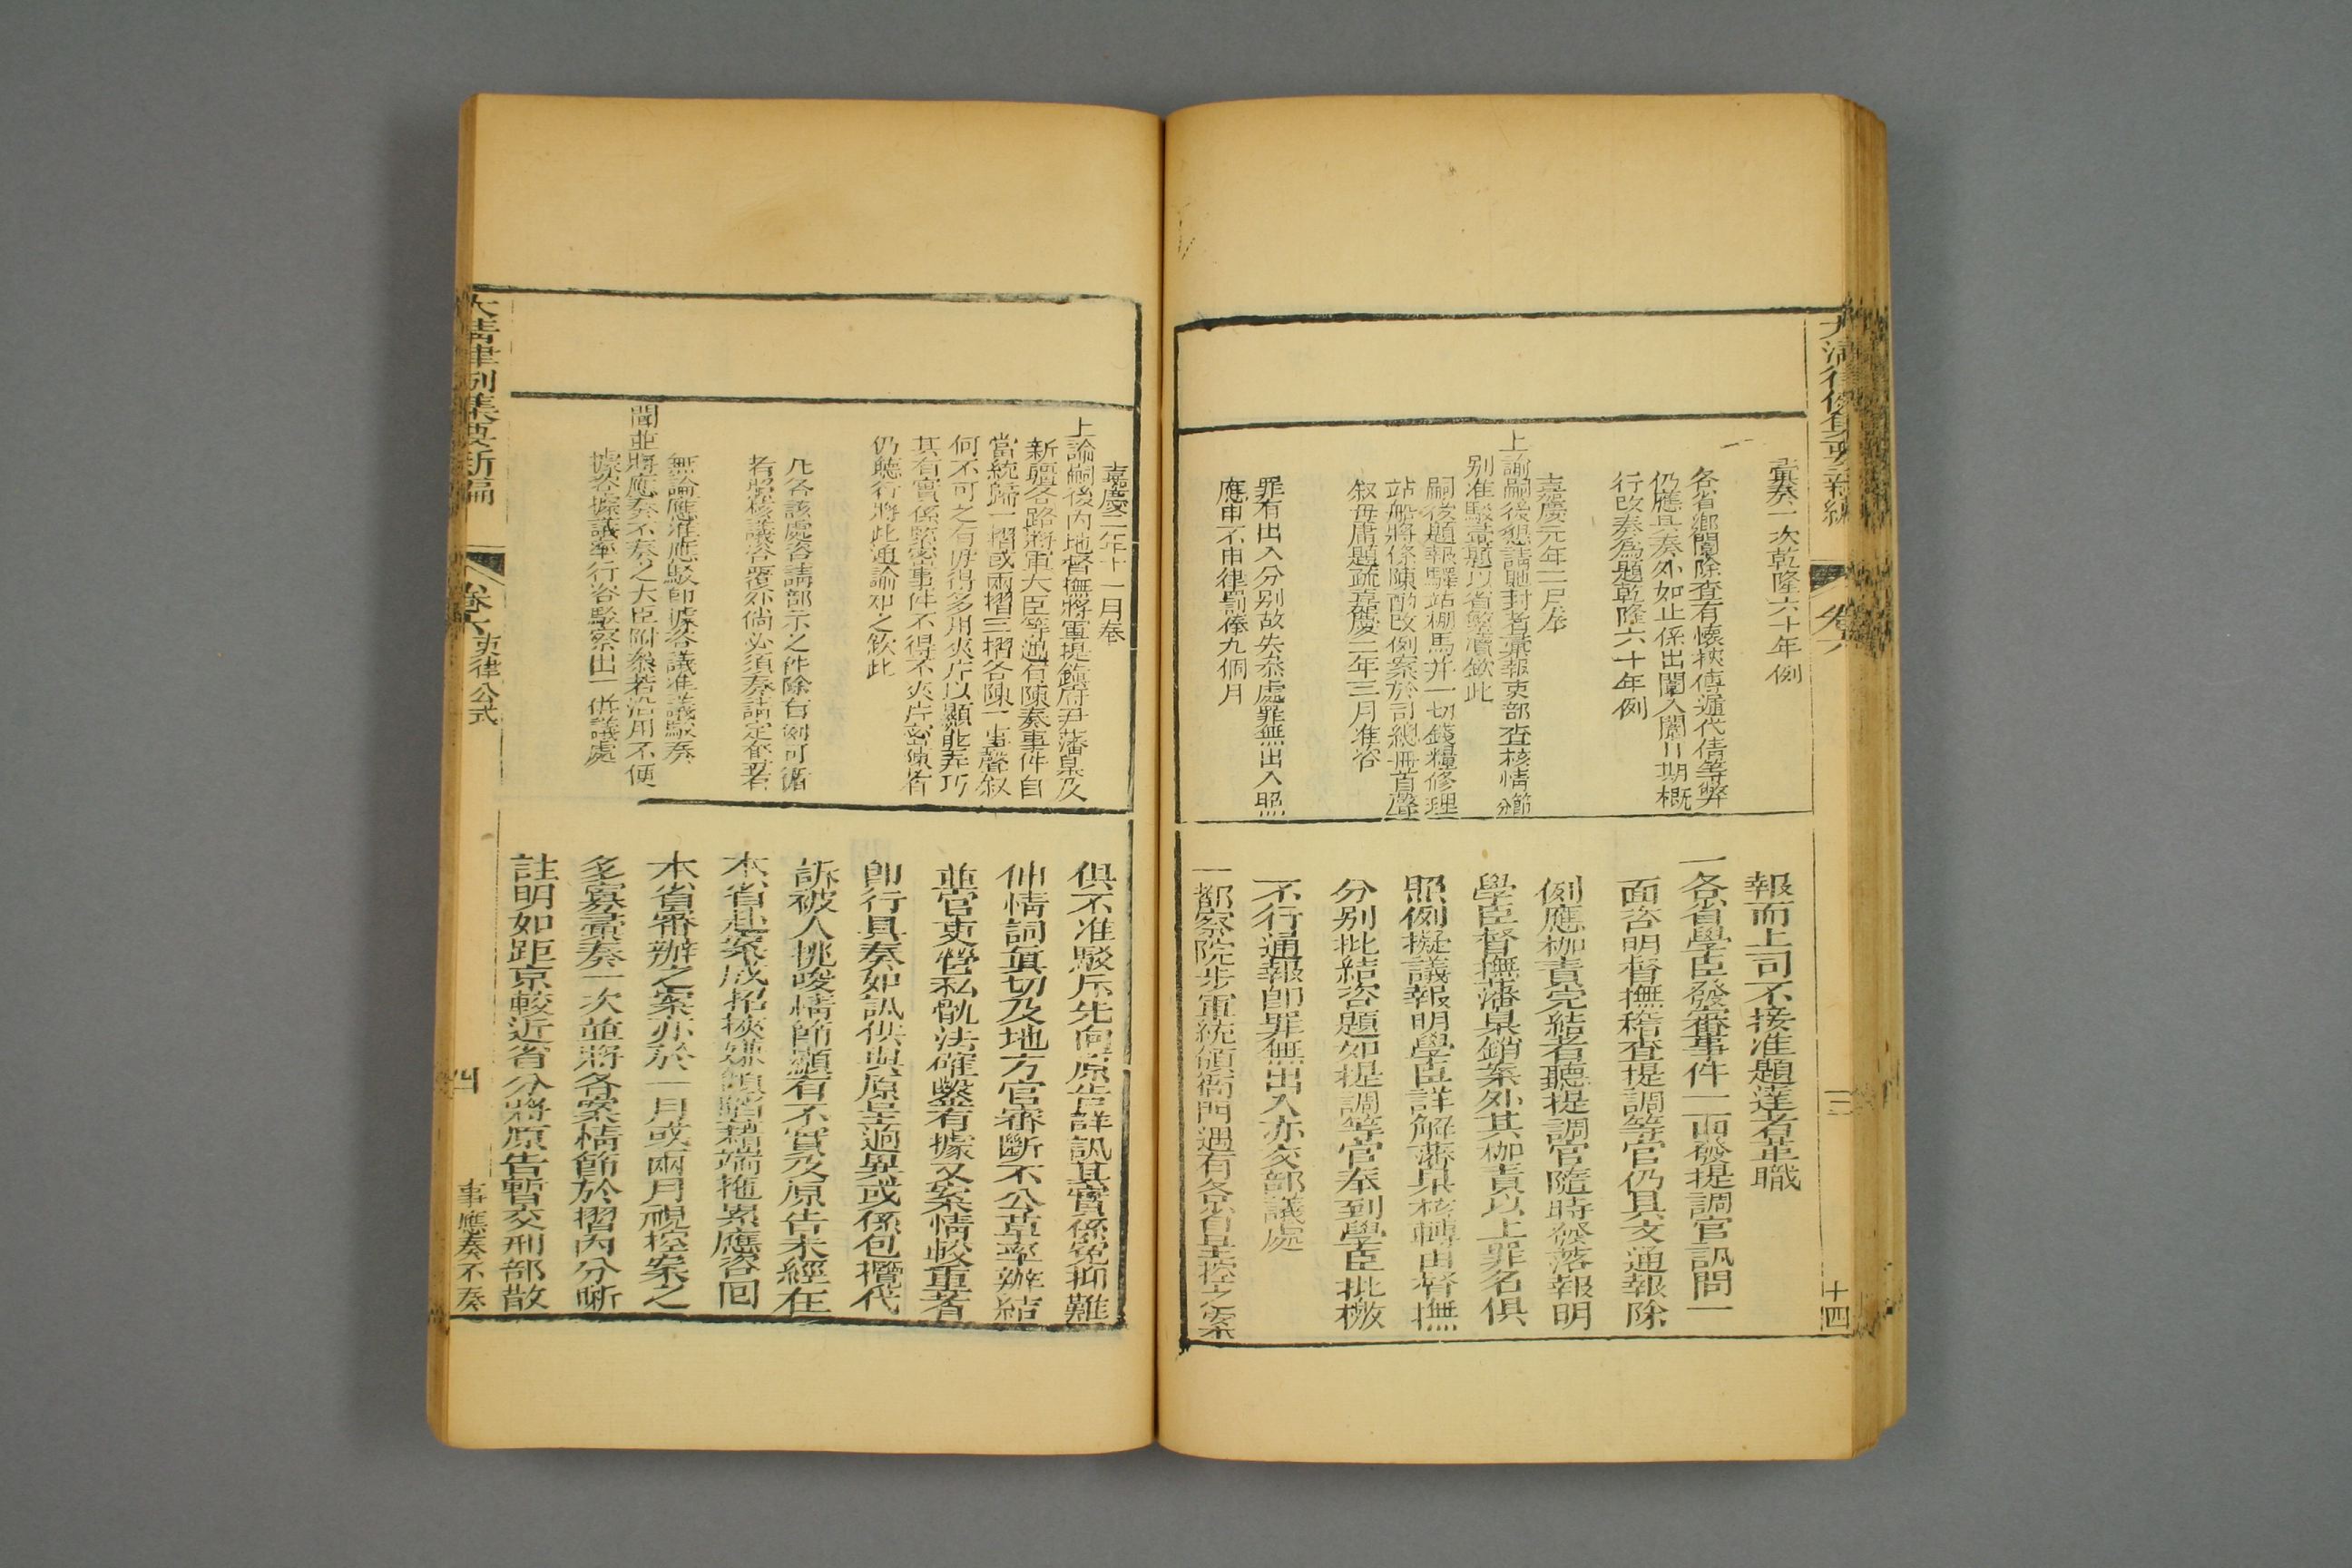 彙奏一次乾隆六十年例
各省鄉闈除查有懷挾傳遞代倩等弊
仍應具奏外如止係出闈入闈日期概
行改奏為題乾隆六十年例
嘉慶元年二月奉
上諭嗣後懇請馳封者彙報吏部查核情節分
別准駁彙題以省繁瀆欽此
嗣後題報驛站棚馬并一切錢糧修理
站船將條陳酌改例案於司總冊首聲
叙毋庸題疏嘉慶二年三月准咨
罪有出入分別故失叅處罪無出入照
應申不申律罰俸九個月
報而上司不接准題達者革職
一各省學臣發審事件一面發提調官訊問一
面咨明督撫稽查提調等官仍具文通報除
例應枷責完結者聽提調官隨時發落報明
學臣督撫藩臬銷案外其枷責以上罪名俱
照例擬議報明學臣詳解藩臬核轉由督撫
分別批結咨題如提調等官奉到學臣批檄
不行通報即罪無出入亦交部議處
一都察院步軍統領衙門遇有各省呈控之案
卷六
三
十四
嘉慶二年十一月奉
上諭嗣後內地督撫將軍提鎮府尹藩臬及
新疆各路將軍大臣等遇有陳奏事件自
當統歸一摺或兩摺三摺各陳一事聲叙
何不可之有毋得多用夾片以顯能弄巧
其有實係緊密事件不得不夾片密陳者
仍聽行將此通諭知之欽此
凡各該處咨請部示之件除有例可循
者照核議咨覆外倘必須奏請定奪者
無論應准應駁即據咨議准議駁奏
聞並將應奏不奏之大臣附叅若沿用不便
據咨據議率行咨駁察出一併議處
俱不准駁斥先向原告詳訊其實係冤抑難
伸情詞真切及地方官審斷不公草率辦結
並官吏營私骩法確鑿有據又案情較重者
即行具奏如訊供與原呈迥異或係包攬代
訴被人挑唆情節顯有不實及原告未經在
本省赴案成招挾嫌傾陷藉端拖累應咨回
本省審辦之案亦於一月或兩月視控案之
多寡彙奏一次並將各案情節於摺內分晰
註明如距京較近省分將原告暫交刑部散
大清律例集要新編
卷六
吏律公式
四
事應奏不奏